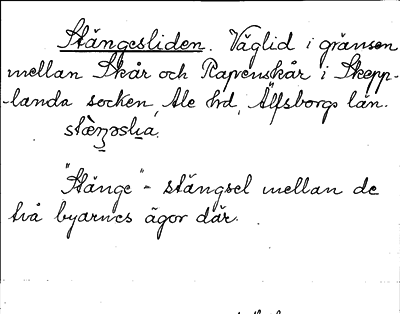 Stängesliden. Väglid i gränsen
mellan Skår och Ravenskår i Skepp-
-landa socken, Ale hd, Älfsborgs län.
"Stänge" - stängsel mellan de
två byarnes ägor där.